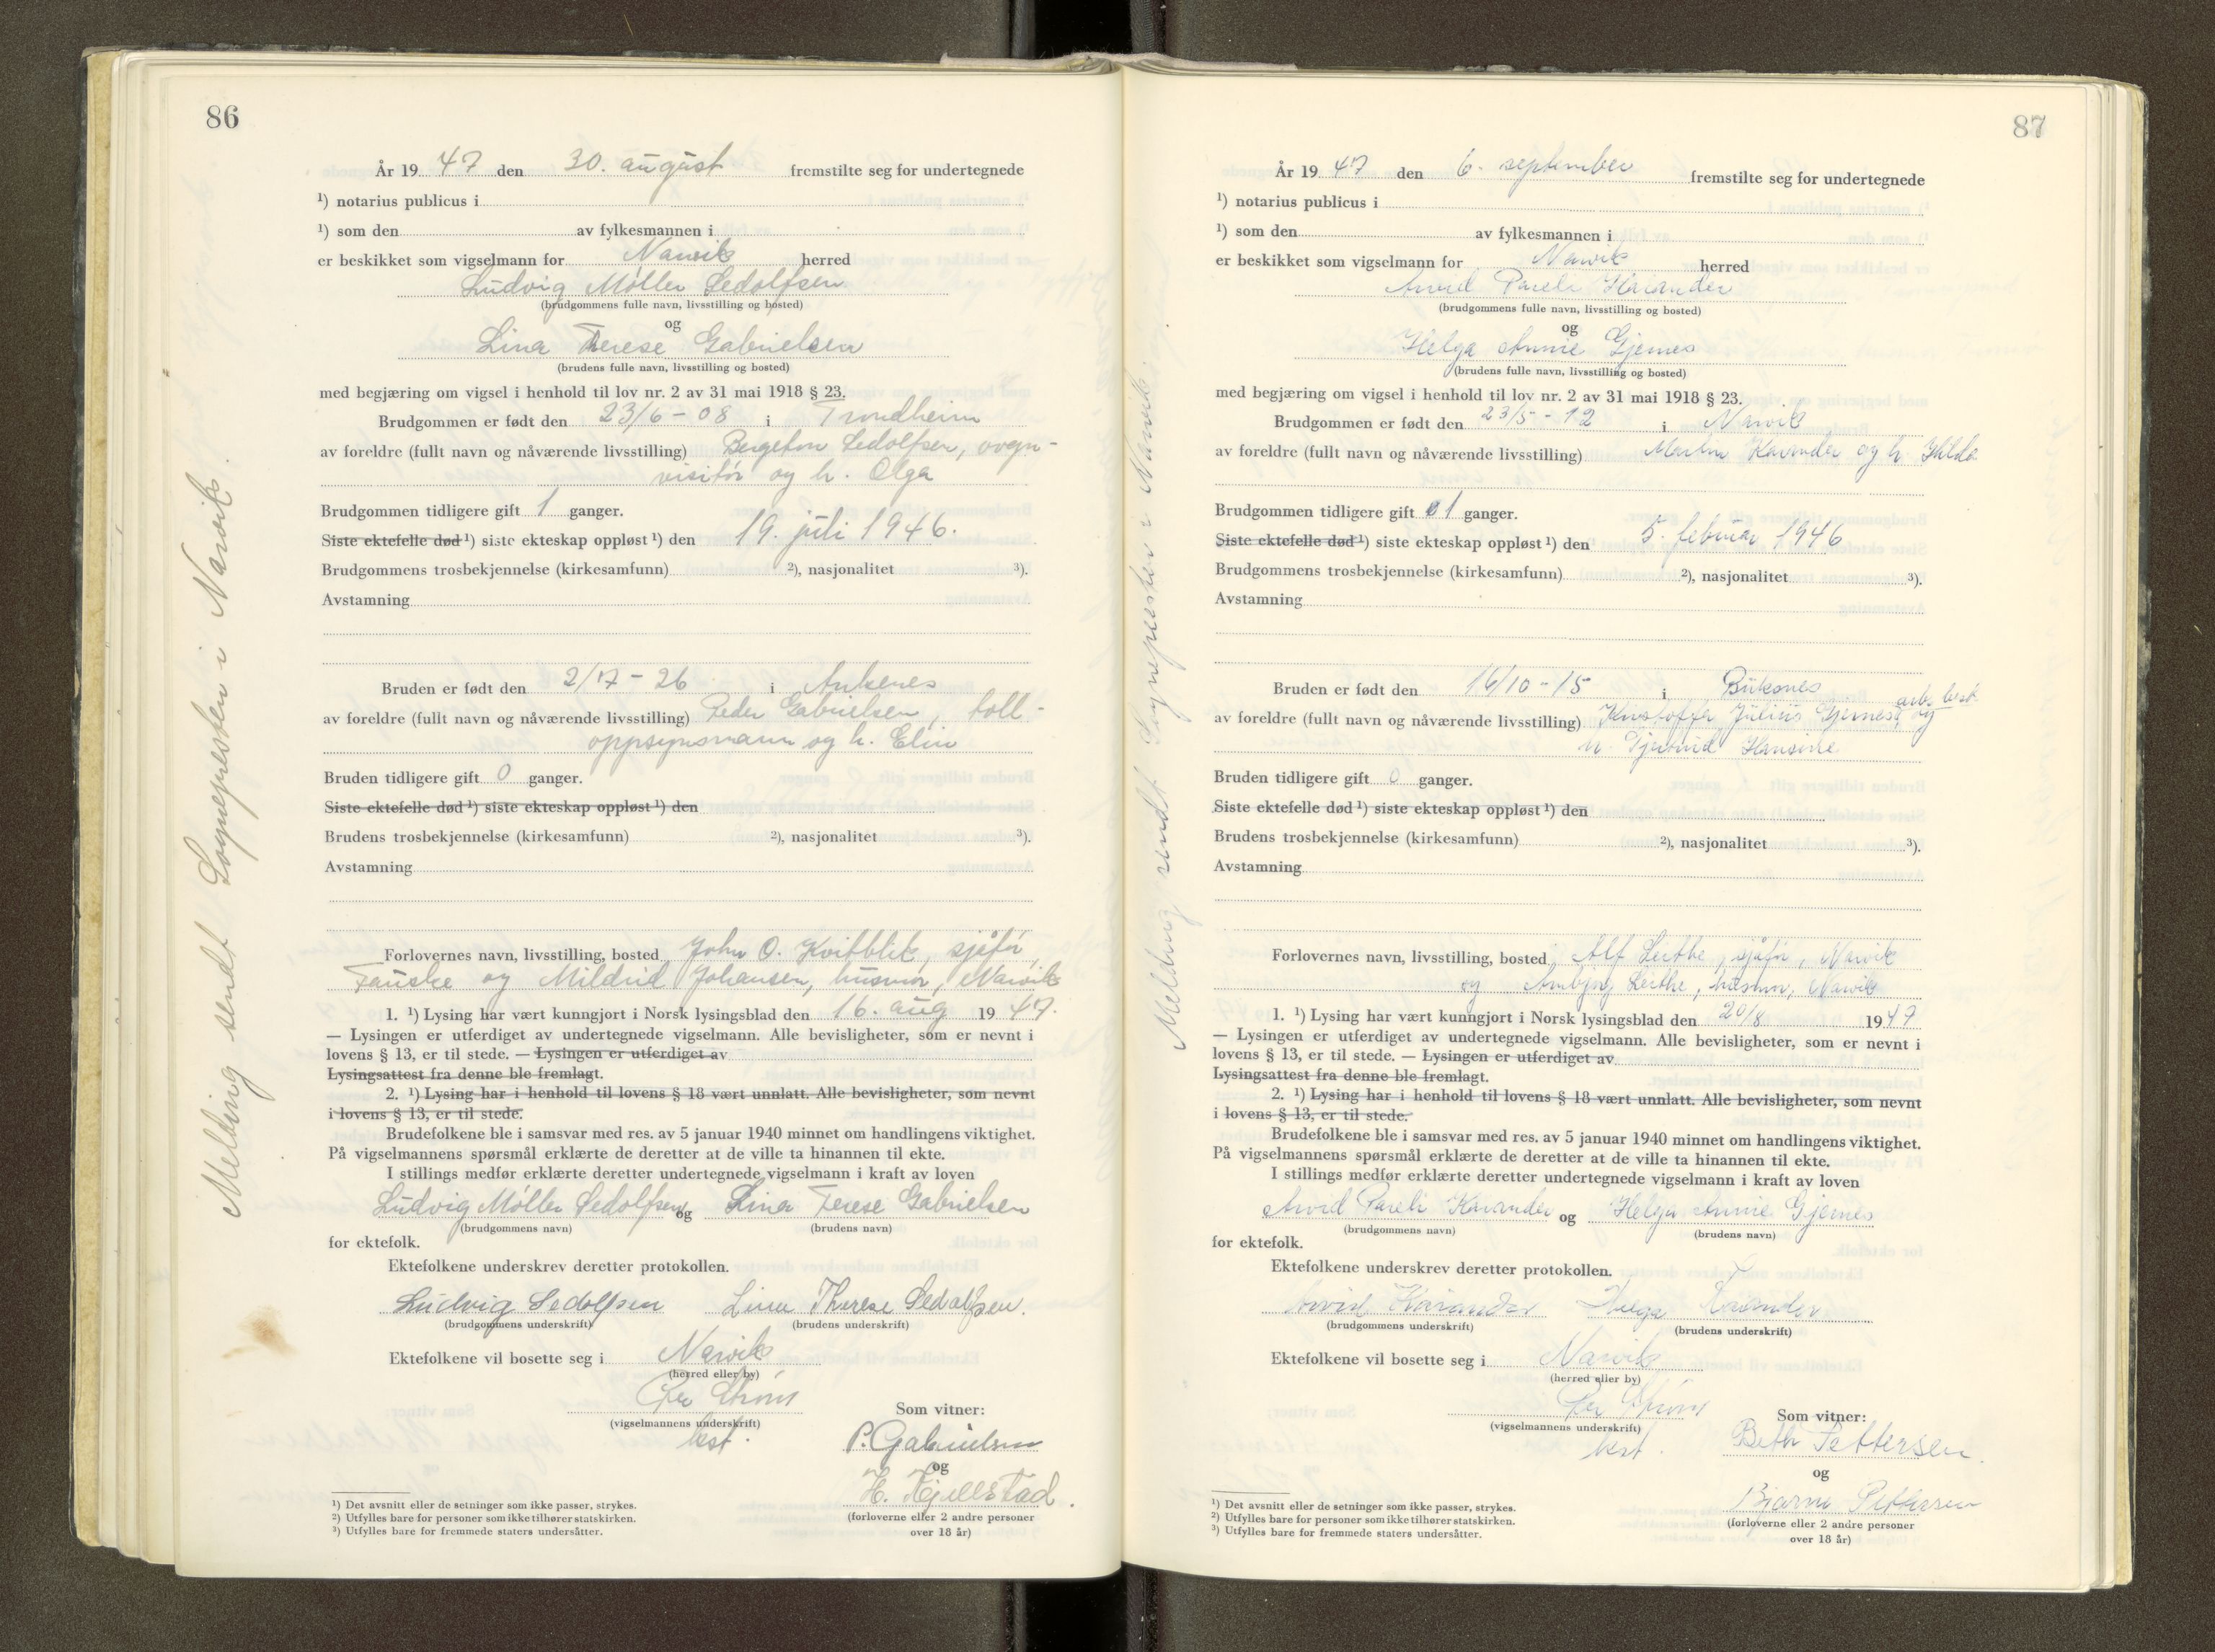 86
År 19 47 den 30. august fremstilte seg for undertegnede
¹) notarius publicus i
¹) som den av fylkesmannen i
er beskikket som vigselmann for Narvik herred
Ludvig Møller Sedolfsen
(brudgommens fulle navn, livsstilling og bosted)
og
Lina Therese Gabrielsen
(brudens fulle navn, livsstilling og bosted)
med begjæring om vigsel i henhold til lov nr. 2 av 31 mai 1918 § 23.
Brudgommen er født den 23/6 - 08 i Trondheim
av foreldre (fullt navn og nåværende livsstilling) Bergeton Sedolfsen, vogn-
visitør og h. Olga
Brudgommen tidligere gift 1 ganger.
Siste ektefelle død ¹) siste ekteskap oppløst ¹) den 19. juli 1946.
Brudgommens trosbekjennelse (kirkesamfunn) ²), nasjonalitet ³).
Avstamning
Bruden er født den 2/7 - 26 i Ankenes
av foreldre (fullt navn og nåværende livsstilling) Peder Gabrielsen, toll-
oppsynsmann og h. Elin
Bruden tidligere gift 0 ganger.
Siste ektefelle død ¹) siste ekteskap oppløst ¹) den
Brudens trosbekjennelse (kirkesamfunn) ²), nasjonalitet ³).
Avstamning
Forlovernes navn, livsstilling, bosted John O. Kvitblik, sjåfør,
Fauske og Mildrid Johansen, husmor, Narvik
1. ¹) Lysing har vært kunngjort i Norsk lysingsblad den 16. aug 19 47.
— Lysingen er utferdiget av undertegnede vigselmann. Alle bevisligheter, som er nevnt i
lovens § 13, er til stede. — Lysingen er utferdiget av
Lysingsattest fra denne ble fremlagt.
2. ¹) Lysing har i henhold til lovens § 18 vært unnlatt. Alle bevisligheter, som nevnt
i lovens § 13, er til stede.
Brudefolkene ble i samsvar med res. av 5 januar 1940 minnet om handlingens viktighet.
På vigselmannens spørsmål erklærte de deretter at de ville ta hinannen til ekte.
I stillings medfør erklærte deretter undertegnede vigselmann i kraft av loven
Ludvig Møller Sedolfsen og Lina Terese Gabrielsen
(brudgommens navn) (brudens navn)
for ektefolk.
Ektefolkene underskrev deretter protokollen.
Ludvig Sedolfsen Lina Therese Sedolfsen.
(brudgommens underskrift) (brudens underskrift)
Ektefolkene vil bosette seg i Narvik
(herred eller by)
Per Strøm
(vigselmannens underskrift)
best.
Som vitner:
P. Gabrielsen
og
H. Kjellstad.
(forloverne eller 2 andre personer
over 18 år)
¹) Det avsnitt eller de setninger som ikke passer, strykes.
²) Utfylles bare for personer som ikke tilhører statskirken.
³) Utfylles bare for fremmede staters undersåtter.
Melding sendt Sognepresten i Narvik.
87
År 19 47 den 6. september fremstilte seg for undertegnede
¹) notarius publicus i
¹) som den av fylkesmannen i
er beskikket som vigselmann for Narvik herred
Arvid Pareli Kavander
(brudgommens fulle navn, livsstilling og bosted)
og
Helga Annie Gjernes
(brudens fulle navn, livsstilling og bosted)
med begjæring om vigsel i henhold til lov nr. 2 av 31 mai 1918 § 23.
Brudgommen er født den 23/5 - 12 i Narvik
av foreldre (fullt navn og nåværende livsstilling) Martin Kavander og h. Hilda
Brudgommen tidligere gift 1 ganger.
Siste ektefelle død ¹) siste ekteskap oppløst ¹) den 5. februar 1946
Brudgommens trosbekjennelse (kirkesamfunn) ²), nasjonalitet ³).
Avstamning
Bruden er født den 16/10 - 15 i Buksnes
av foreldre (fullt navn og nåværende livsstilling) Kristoffer Julius Gjernes, arb. best. og
h. Hansine
Bruden tidligere gift 0 ganger.
Siste ektefelle død ¹) siste ekteskap oppløst ¹) den
Brudens trosbekjennelse (kirkesamfunn) ²), nasjonalitet ³).
Avstamning
Forlovernes navn, livsstilling, bosted Alf Leithe, sjåfør, Narvik
og Ambjørg Leithe, husmor, Narvik
1. ¹) Lysing har vært kunngjort i Norsk lysingsblad den 20/8 19 47
— Lysingen er utferdiget av undertegnede vigselmann. Alle bevisligheter, som er nevnt i
lovens § 13, er til stede. — Lysingen er utferdiget av
Lysingsattest fra denne ble fremlagt.
2. ¹) Lysing har i henhold til lovens § 18 vært unnlatt. Alle bevisligheter, som nevnt
i lovens § 13, er til stede.
Brudefolkene ble i samsvar med res. av 5 januar 1940 minnet om handlingens viktighet.
På vigselmannens spørsmål erklærte de deretter at de ville ta hinannen til ekte.
I stillings medfør erklærte deretter undertegnede vigselmann i kraft av loven
Arvid Pareli Kavander og Helga Annie Gjernes
(brudgommens navn) (brudens navn)
for ektefolk.
Ektefolkene underskrev deretter protokollen.
Arvid Kavander Helga Kavander
(brudgommens underskrift) (brudens underskrift)
Ektefolkene vil bosette seg i Narvik
(herred eller by)
Per Strøm
(vigselmannens underskrift)
best.
Som vitner:
Beth Pettersen.
og
Bjarne Pettersen
(forloverne eller 2 andre personer
over 18 år)
¹) Det avsnitt eller de setninger som ikke passer, strykes.
²) Utfylles bare for personer som ikke tilhører statskirken.
³) Utfylles bare for fremmede staters undersåtter.
Melding sendt Sognepresten i Narvik.